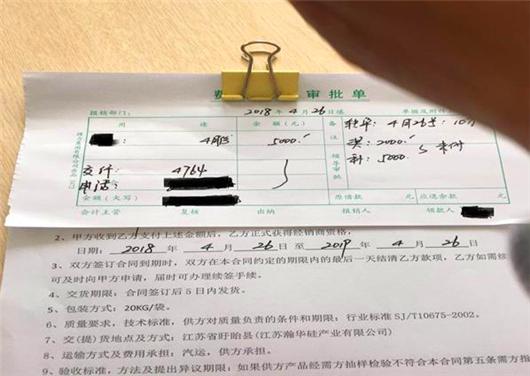 费 审批单
报核部门： 2018年4月26日填 单据及附件
用 途 金额（元） 备注 转卡：4月26号：10万
4月 5000.- 奖：2000.-
领导审批 5000
交行 4764
电话：
金额（大写） 原借款 元 应退余款 元
会计主管 复核 出纳 报销人 领款人
2、甲方收到乙方支付上述金额后，乙方正式获得经销商资格，
日期：2018年4月26日至2019年4月26日
3、双方签订合同到期时，双方在本合同约定的期限内的最后一天结清乙方款项，乙方如需续
可及时向甲方申请，届时可办理续签手续。
4、交货期限：合同签订后5日内发货。
5、包装方式：20KG/袋。
6、质量要求，技术标准，供方对质量负责的条件和期限：行业标准SJ/T10675-2002。
7、交(提)货地点及方式：江苏省盱眙县(江苏瀚华硅产业有限公司)
8、运输方式及费用承担：汽运，供方承担。
9、验收标准，方法及提出异议期限：如果供方产品经需方抽样检验不符合本合同第五条需方指